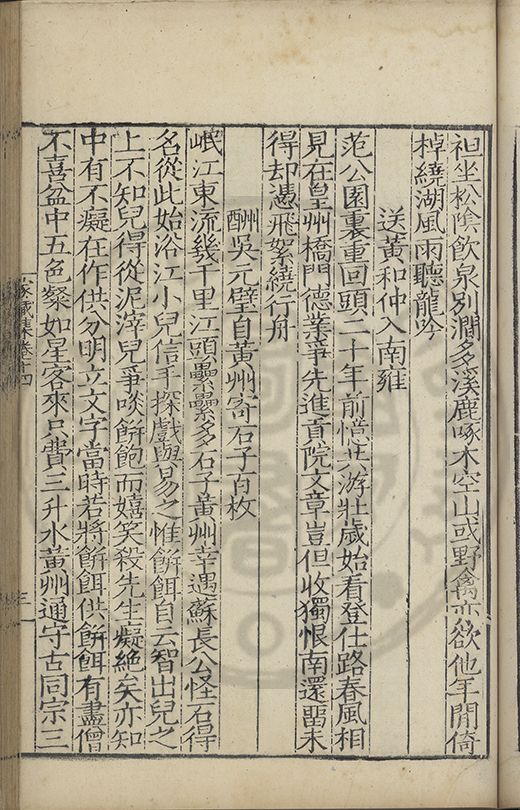 袒坐松陰飲泉別澗多溪鹿啄木空山或野禽亦欲他年閒倚
棹繞湖風雨聽龍吟
送黃和仲入南雍
范公園裏重回頭二十年前憶共游壯歲始看登仕路春風相
見在皇州橋門德業爭先進貢院文章豈但收獨恨南還畱未
得却憑飛絮繞行舟
酬吳元璧自黃州寄石子百枚
岷江東流幾千里江頭纍纍多石子黃州幸遇蘇長公怪石得
名從此始浴江小兒信手探戲與易之惟餅餌自云智出兒之
上不知兒得從泥滓兒爭啖餅飽而嬉笑殺先生癡絕矣亦知
中有不癡在作供分明立文字當時若將餅餌供餅餌有盡僧
不喜盆中五色粲如星客來只費三升水黃州通守古同宗三
集卷十四
三